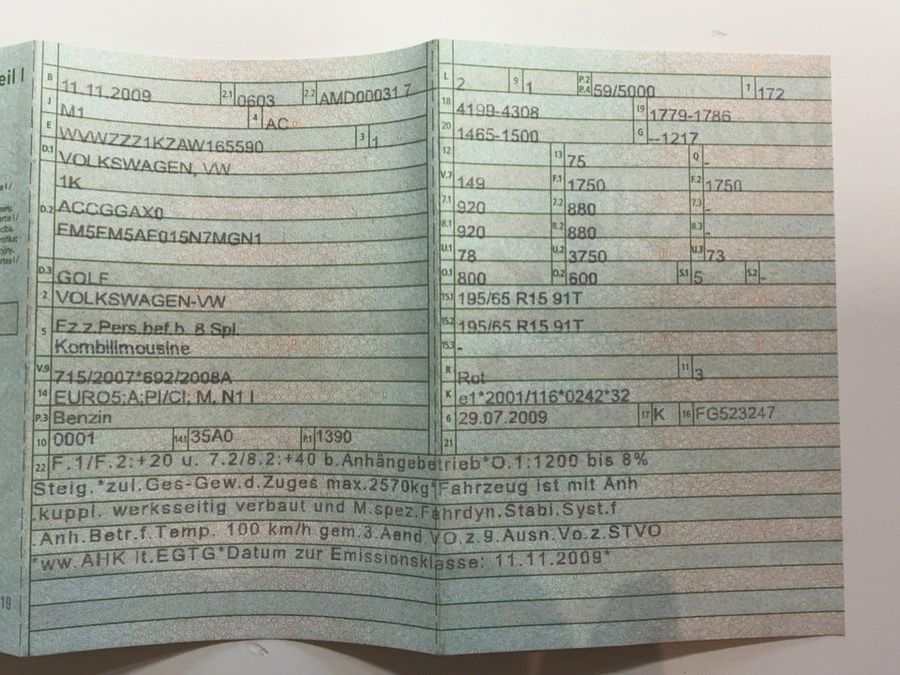 eil I
B 11.11.2009 2.1 0603 2.2 AMD000317
J M1 4 AC
E WVWZZZ1KZAW165590 3 1
D.1 VOLKSWAGEN, VW
1K
D.2 ACCGGAX0
FM5FM5AF015N7MGN1
D.3 GOLF
2 VOLKSWAGEN-VW
5 Fz.z.Pers.bef.b. 8 Spl.
Kombilimousine
V.9 715/2007*692/2008A
14 EURO5;A;PI/CI; M, N1 I
P.3 Benzin
10 0001 14.1 35A0 P.1 1390
L 2 9 1 P.2 P.4 59/5000 T 172
18 4199-4308 19 1779-1786
20 1465-1500 G --1217
12 13 75 Q -
V.7 149 F.1 1750 F.2 1750
7.1 920 7.2 880 7.3 -
8.1 920 8.2 880 8.3 -
U.1 78 U.2 3750 U.3 73
O.1 800 O.2 600 S.1 5 S.2 -
15.1 195/65 R15 91T
15.2 195/65 R15 91T
15.3 -
R Rot 11 3
K e1*2001/116*0242*32
6 29.07.2009 17 K 16 FG523247
21
22 F.1/F.2:+20 u. 7.2/8.2:+40 b.Anhängebetrieb*O.1:1200 bis 8%
Steig.*zul.Ges-Gew.d.Zuges max.2570kg*Fahrzeug ist mit Anh
.kuppl. werksseitig verbaut und M.spez.Fahrdyn.Stabi.Syst.f
.Anh.Betr.f.Temp. 100 km/h gem.3.Aend.VO.z.9.Ausn.Vo.z.STVO
*ww.AHK lt.EGTG*Datum zur Emissionsklasse: 11.11.2009*
19